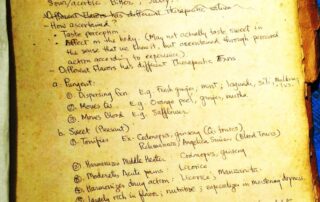 Sour/acerbic bitter, salty
Different flavors has different therapeutic action
- How ascertained -
- Taste perception
- Effect on the body. (May not actually taste sweet in
the sense that we know it, but ascertained through perceived
action according to experience).
- Different Flavors has diff't Therapeutic
a. Pungent:
① Dispersing e.g. Fresh ginger, mint;
② Moves Qi e.g. Orange peel, ginger,
③ Moves Blood e.g. Safflower
b. Sweet (Pleasant)
① Tonifies Ex - Codonopsis, ginseng (Qi tonics)
Rehmannia, Angelica Sinensis (Blood Tonics)
② Harmonizes Middle Heater Codonopsis, ginseng
③ Moderates Acute pains : Licorice
④ Harmonizes drug action : Licorice ;
⑤ largely rich in flavors, nutritive ; specialize in moistening dryness